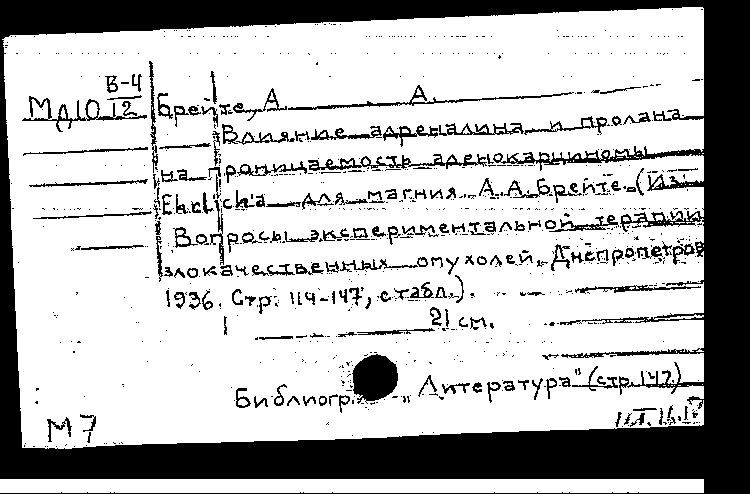 В-4
МД10 12 Брейте, А А.
Влияние адреналина и пролана
на проницаемость аденокарциномы
Ehrlich'а для магния. А.А. Брейте. (Из:
Вопросы экспериментальной терапии
злокачественных опухолей. Днепропетров
1936. Стр. 114-147, с табл.).
21 см.
Библиогр. „Литература" (стр. 147)
М7